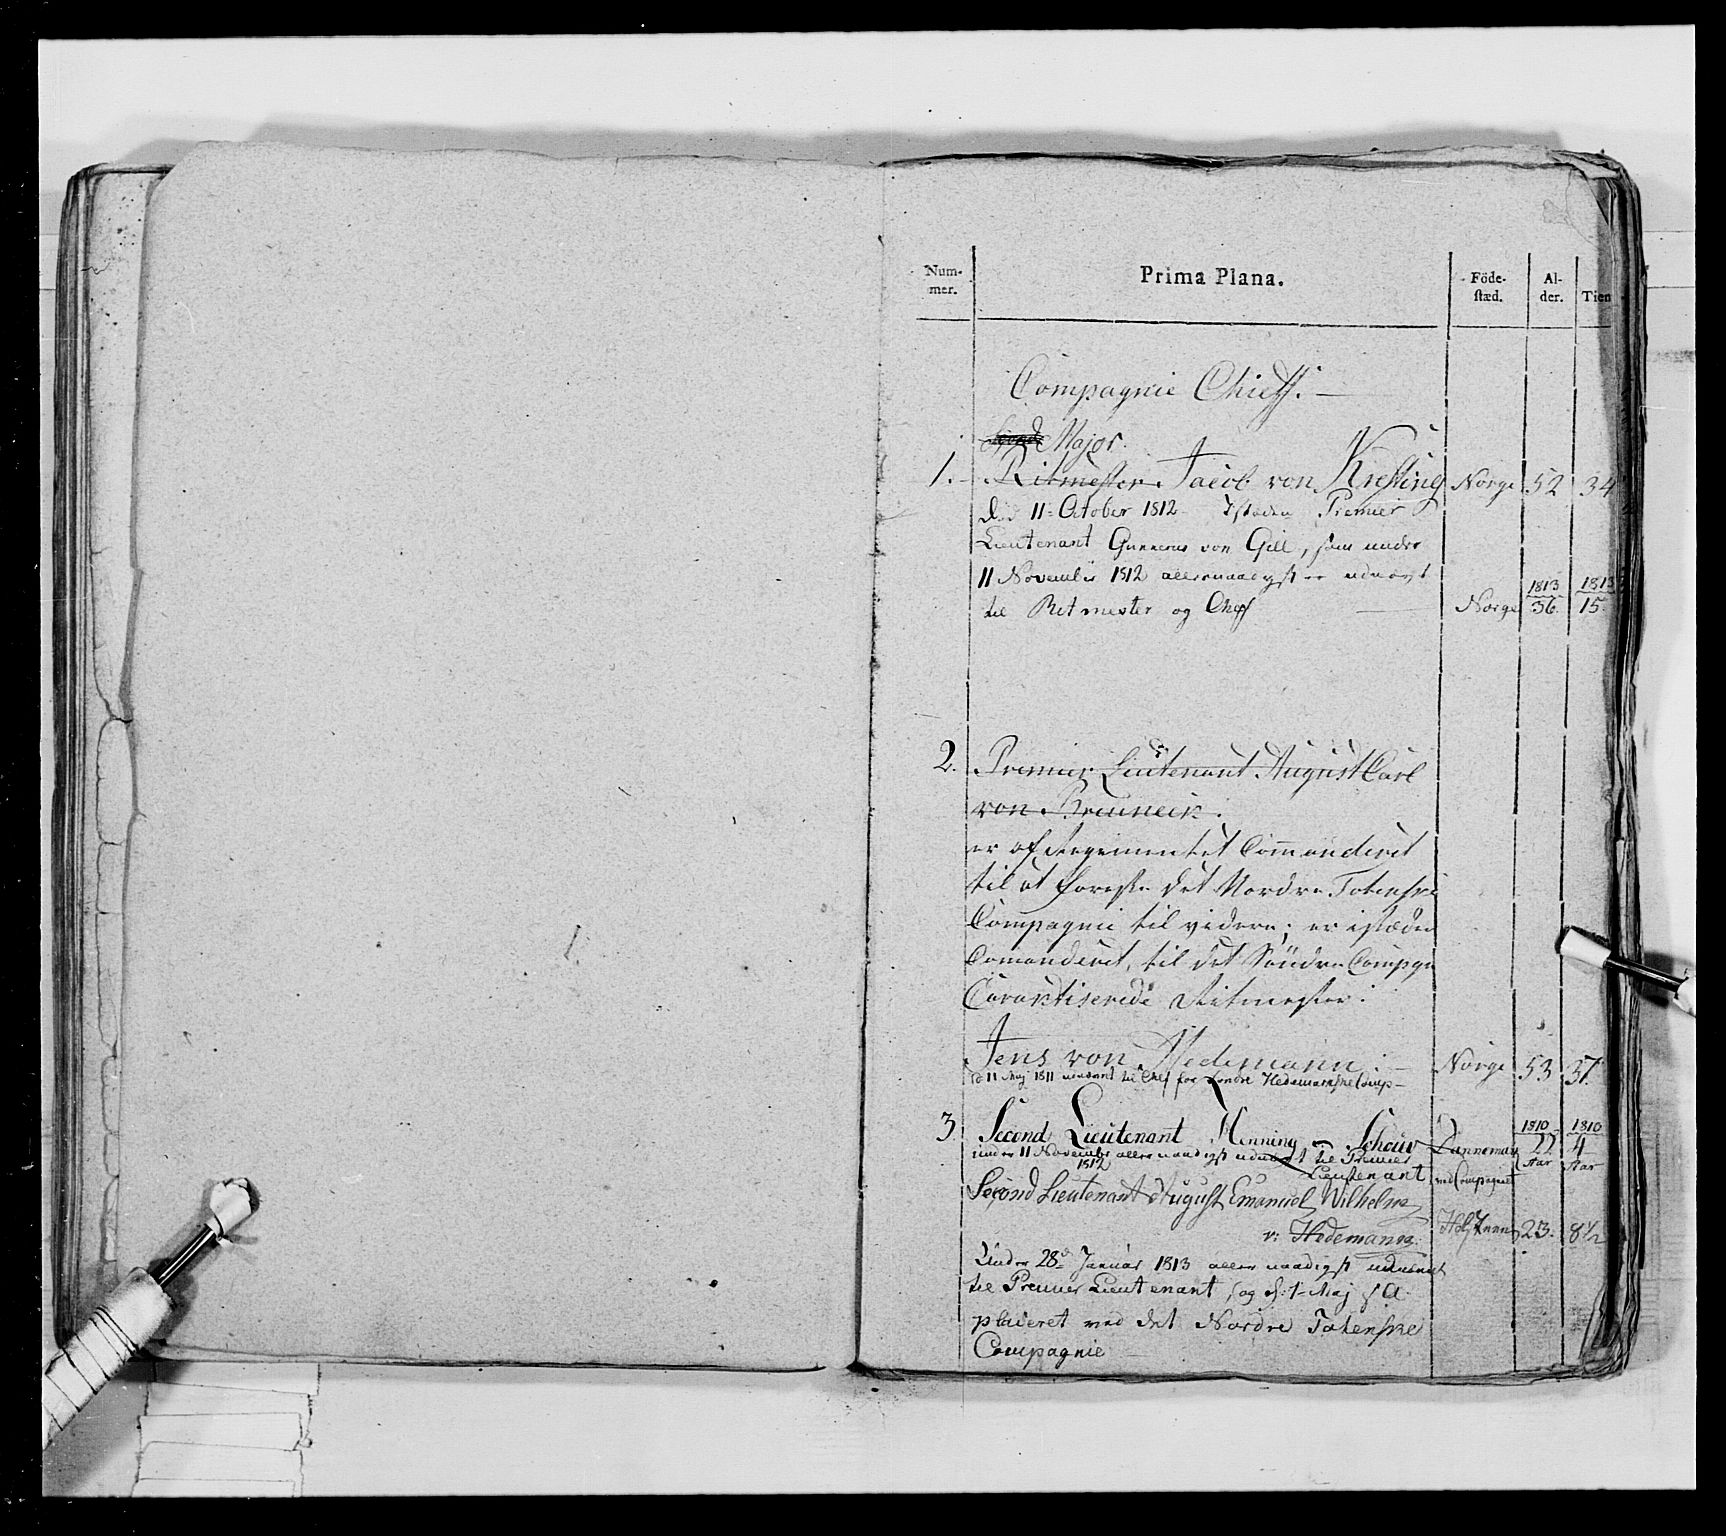 Num-
mer.
Prima Plana.
Föde-
stæd.
Al-
der.
Tien
Compagnie Cheff. —
Second Major.
1. Ritmester Jacob von Kiesling Norge 52 34
Død 11 October 1812 Istæden Premier
Lieutenant Gunnerus von Gill, som under
11 November 1812 allernaadigst er udnævnt
til Ritmester og Chef — Norge 1813 36. 1813 15.
2. Premier Lieutenant August Carl
von Breuneck.
er af Regimentet Commanderet
til at forestaae det Nordre Totenske
Compagnie til videre; er istæden
Comanderet, til det Søndre Compgn
Carakteriserede Ritmester:
Jens von Hedemann: — Norge 53 37.
d 11 Maj 1811 udnævnt til Chef for Søndre Hedemarkske Comp —
3. Second Lieutenant Henning Schouw Dannemark 1810 22 Aar 1810 4 Aar
under 11 November 1812 allernaadigst udnævnt til Premier
Lieutenant ved Compagniet
Second Lieutenant August Emanuel Wilhelm
v: Hedemann. Holsteen 23. 8½
Under 28de Januar 1813 allernaadigst udnævnt
til Premier Lieutenant, og d: 1 Maj s: A
placeret ved det Nordre Totenske
Compagnie